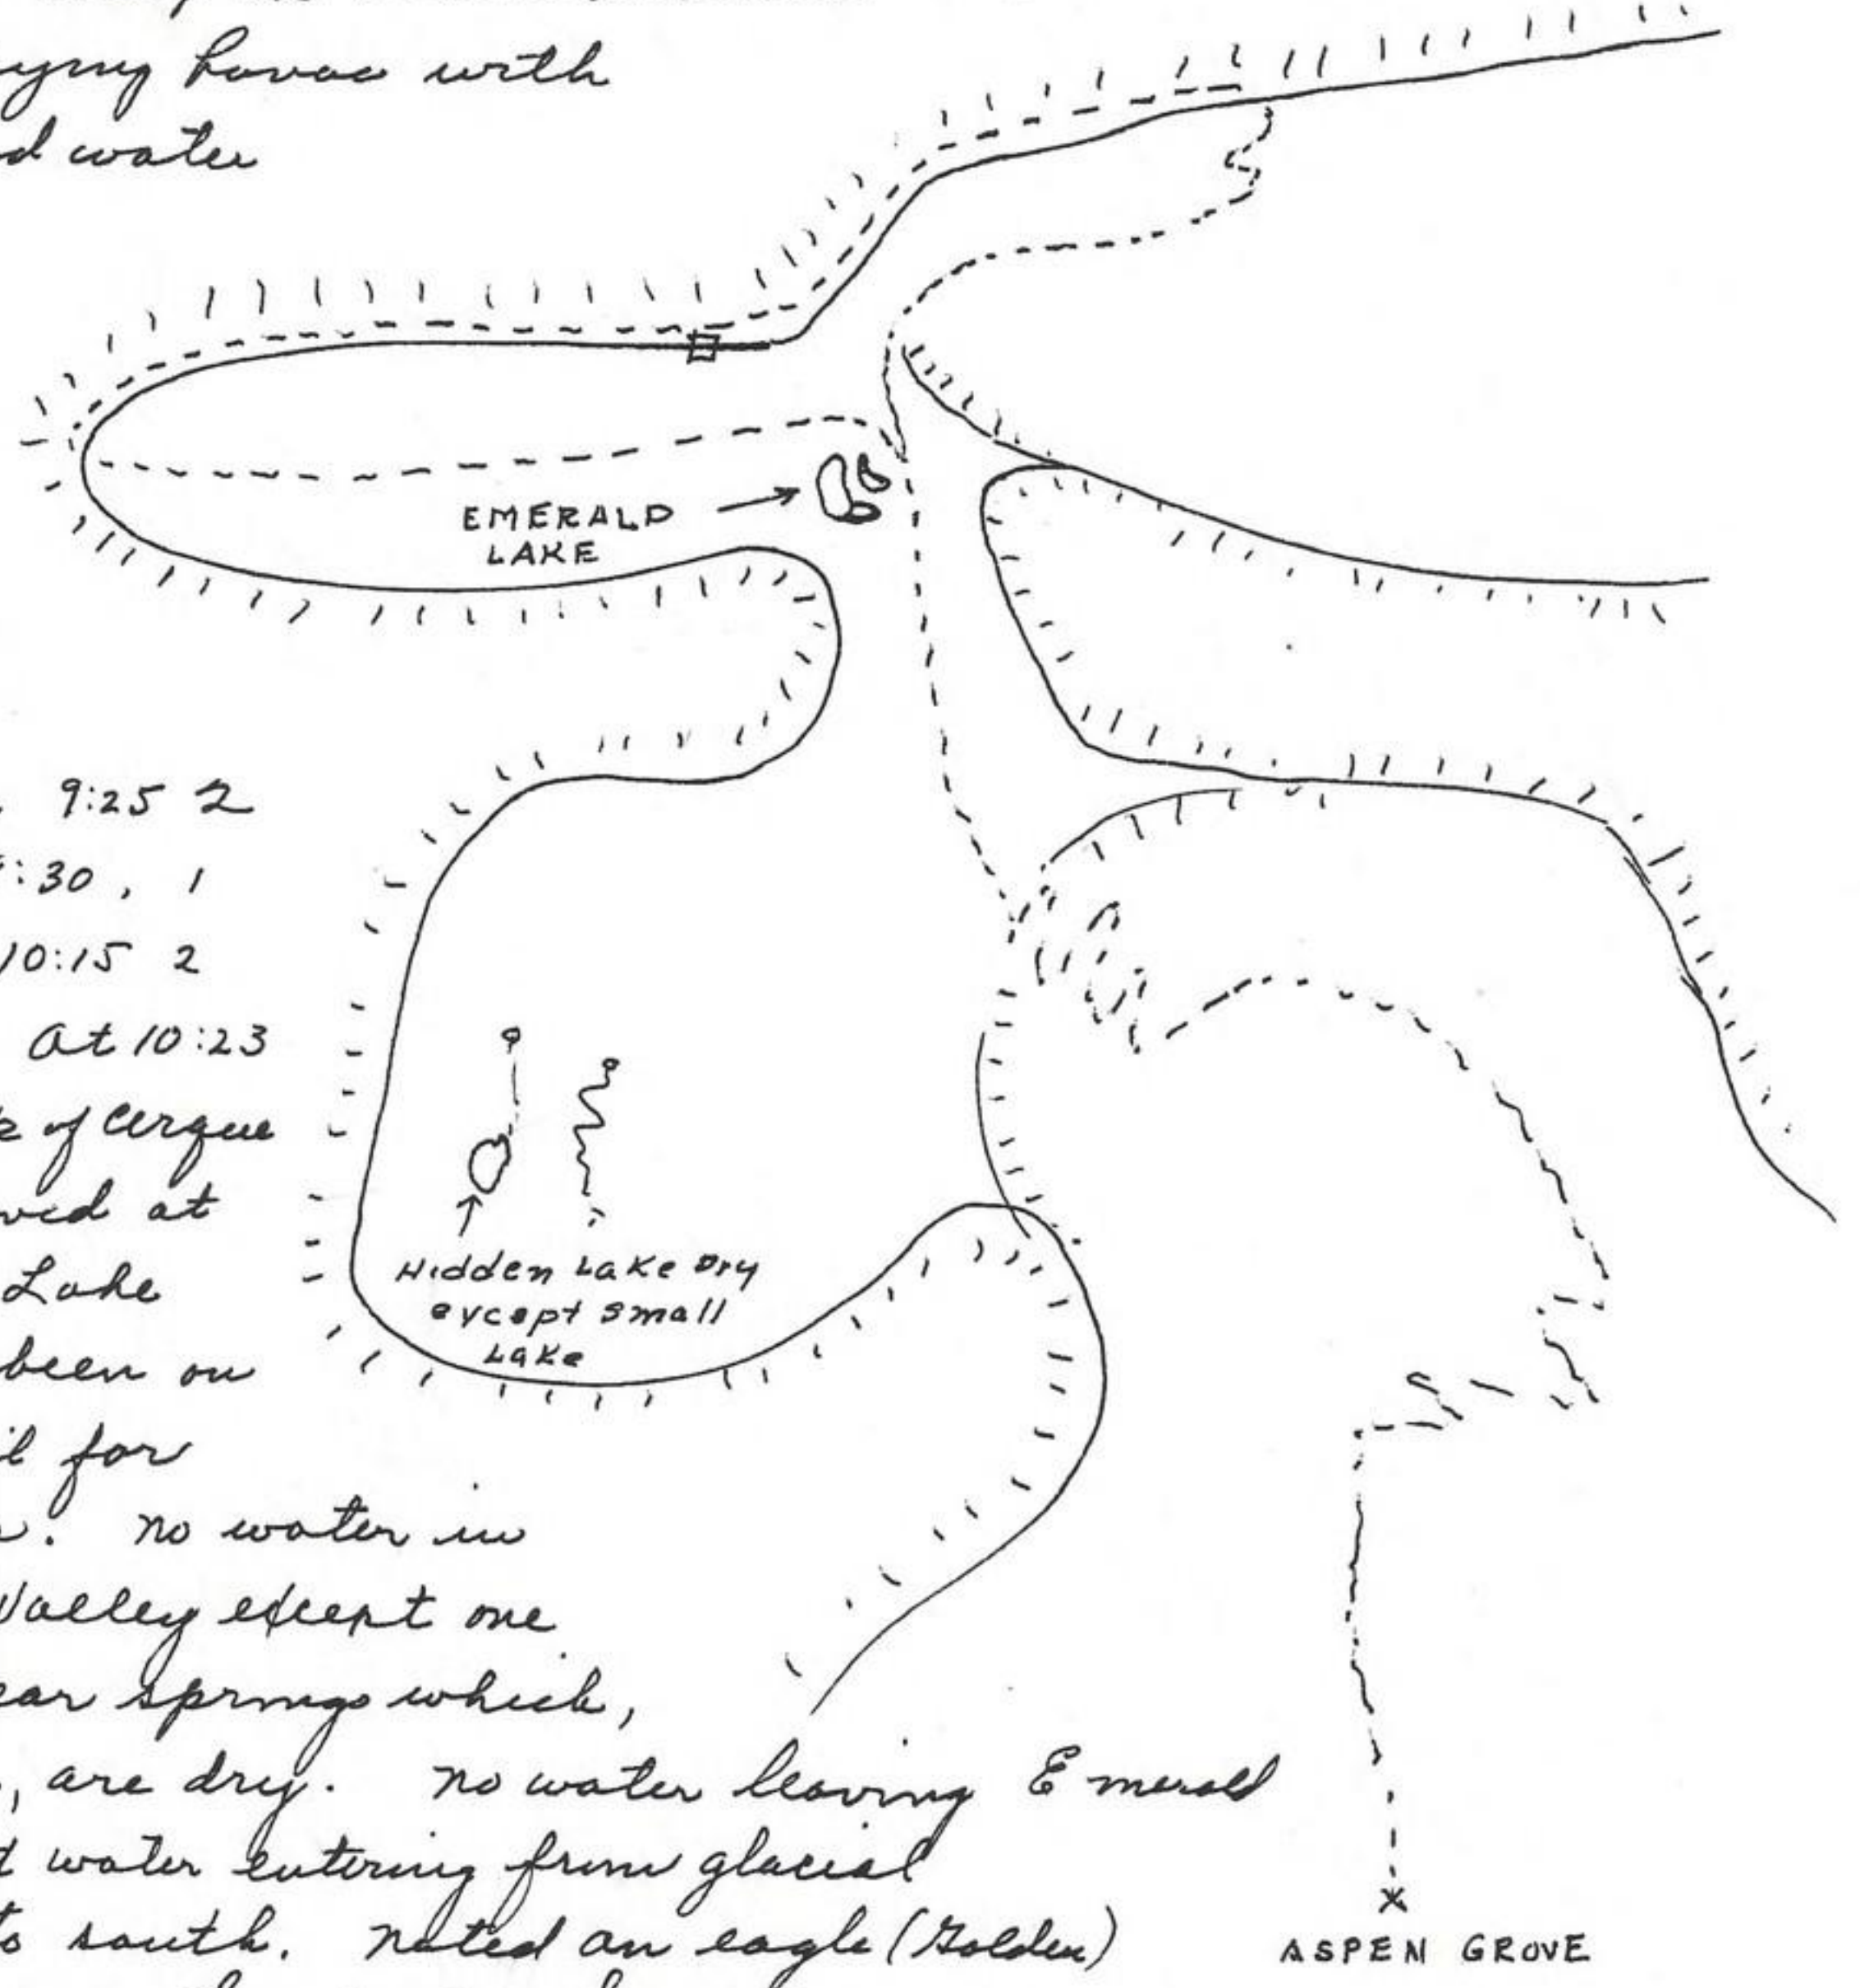 ying havoc with
d water
EMERALD
LAKE
9:25 2
:30, 1
10:15 2
at 10:23
of cerque
ved at
Lake
been on
il for
. no water in
Valley except one
ear springs which,
, are dry. no water leaving Emerald
water entering from glacial
to south. noted an eagle (Golden)
Hidden Lake Dry
except small
Lake
ASPEN GROVE